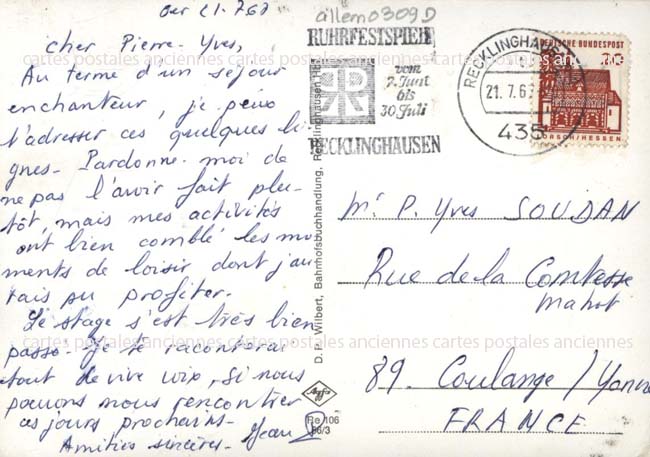 allem0309D
cher Pierre-Yves,
Au terme d'un séjour
enchanteur, je peux
t'adresser ces quelques li-
gnes. Pardonne-moi de
ne pas l'avoir fait plu-
tôt, mais mes activités
ont bien comblé les mo
ments de loisir dont j'au
rais pu profiter.
Le stage s'est très bien
passé. Je te raconterai
tout de vive voix, si nous
pouvons nous rencontrer
ces jours prochains.
Amitiés sincères. Jean
RUHRFESTSPIELE
vom
7. Juni
bis
30. Juli
RECKLINGHAUSEN
RECKLINGHAUSEN
21.7.67
435
DEUTSCHE BUNDESPOST
20
LORSCH/HESSEN
D.P. Wilbert, Bahnhofsbuchhandlung, Recklinghausen Hbf
Agfa
Re 106
66/3
Mr P. Yves SOUDAN
Rue de la Comtesse
Mahot
89. Coulange / Yonne
FRANCE
cartes postales anciennes cartes postales anciennes cartes postales anciennes